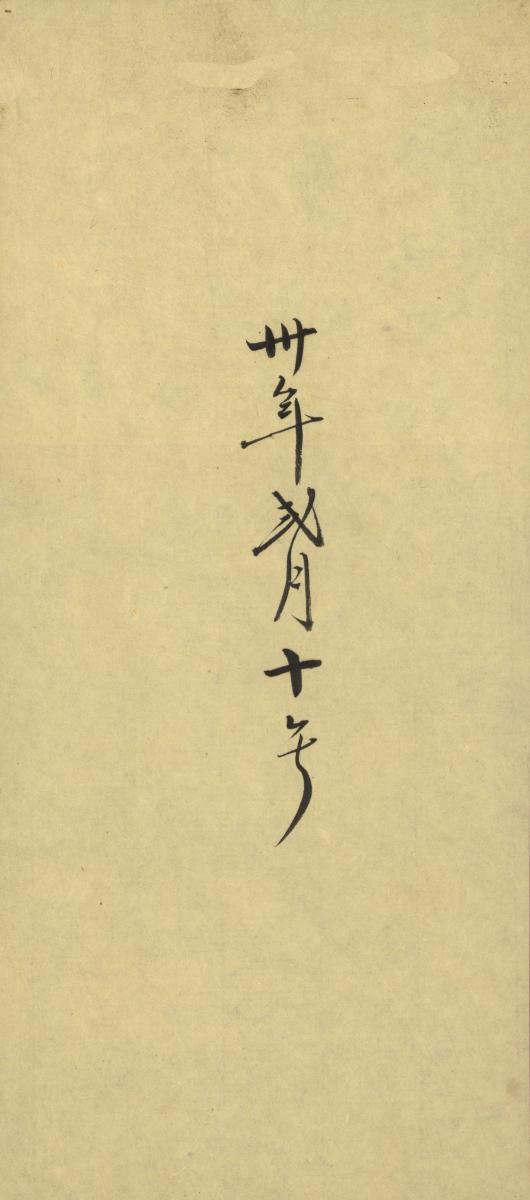 卅年弍月十号